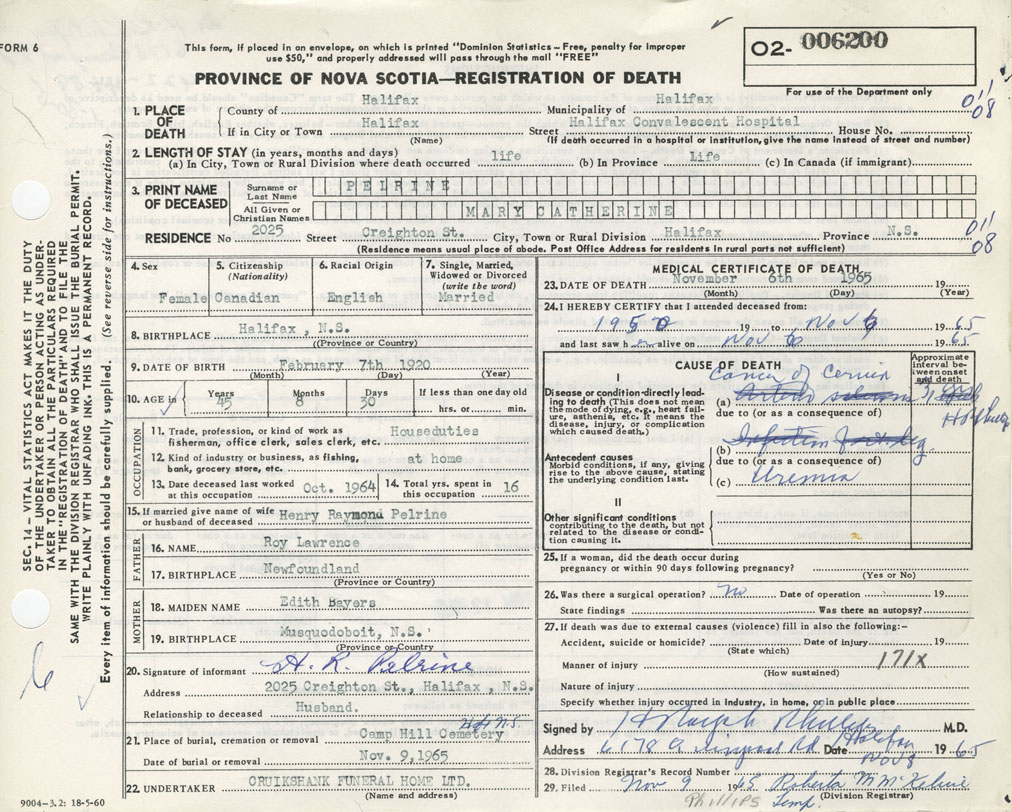 FORM 6
This form, if placed in an envelope, on which is printed "Dominion Statistics – Free, penalty for improper
use $50," and properly addressed will pass through the mail "FREE"
O2- 006200
For use of the Department only
PROVINCE OF NOVA SCOTIA—REGISTRATION OF DEATH
011
08
1. PLACE OF DEATH
County of Halifax Municipality of Halifax
If in City or Town Halifax Street Halifax Convalescent Hospital House No.
(Name) (If death occurred in a hospital or institution, give the name instead of street and number)
2. LENGTH OF STAY (in years, months and days)
(a) In City, Town or Rural Division where death occurred life (b) In Province Life (c) In Canada (if immigrant)
3. PRINT NAME OF DECEASED
Surname or Last Name PELRINE
All Given or Christian Names MARY CATHERINE
RESIDENCE No 2025 Street Creighton St. City, Town or Rural Division Halifax Province N.S.
(Residence means usual place of abode. Post Office Address for residents in rural parts not sufficient)
011
08
4. Sex
Female
5. Citizenship
(Nationality)
Canadian
6. Racial Origin
English
7. Single, Married,
Widowed or Divorced
(write the word)
Married
8. BIRTHPLACE Halifax , N.S.
(Province or Country)
9. DATE OF BIRTH February 7th 1920
(Month) (Day) (Year)
10. AGE in Years 45 Months 8 Days 30 If less than one day
hrs. or min.
OCCUPATION
11. Trade, profession, or kind of work as
fisherman, office clerk, sales clerk, etc. Houseduties
12. Kind of industry or business, as fishing,
bank, grocery store, etc. at home
13. Date deceased last worked
at this occupation Oct. 1964
14. Total yrs. spent in
this occupation 16
15. If married give name of wife
or husband of deceased Henry Raymond Pelrine
FATHER
16. NAME Roy Lawrence
17. BIRTHPLACE Newfoundland
(Province or Country)
MOTHER
18. MAIDEN NAME Edith Bayers
19. BIRTHPLACE Musquodoboit, N.S.
(Province or Country)
20. Signature of informant H. R. Pelrine
Address 2025 Creighton St., Halifax , N.S.
Relationship to deceased Husband.
Hfx N.S.
21. Place of burial, cremation or removal Camp Hill Cemetery
Date of burial or removal Nov. 9,1965
22. UNDERTAKER CRUIKSHANK FUNERAL HOME LTD.
(Name and address)
9004-3.2: 18-5-60
MEDICAL CERTIFICATE OF DEATH
23. DATE OF DEATH November 6th 1965 19
(Month) (Day) (Year)
24. I HEREBY CERTIFY that I attended deceased from:
1950 19 to Nov 6 1965
and last saw her alive on Nov 6 1965
CAUSE OF DEATH
Approximate interval between onset and death
I
Cancer of Cervix
Disease or condition directly leading to death (This does not mean the mode of dying, e.g., heart failure, asthenia, etc. It means the disease, injury, or complication which caused death.)
(a)
due to (or as a consequence of
Antecedent causes
Morbid conditions, if any, giving rise to the above cause, stating the underlying condition last.
(b)
due to (or as a consequence of
(c) Uremia
II
Other significant conditions
contributing to the death, but not related to the disease or condition causing it.
25. If a woman, did the death occur during
pregnancy or within 90 days following pregnancy?
(Yes or No)
26. Was there a surgical operation? No Date of operation 19
State findings Was there an autopsy?
27. If death was due to external causes (violence) fill in also the following:–
Accident, suicide or homicide? Date of injury 19
(State which)
Manner of injury 171x
(How sustained)
Nature of injury
Specify whether injury occurred in industry, in home, or in public place
Signed by M.D.
Address 6178 Rd Halifax Date Nov 8 1965
28. Division Registrar's Record Number
29. Filed Nov 9 1965 Roberta M McKelvie
PHILLIPS Temp (Division Registrar)
SEC. 14 – VITAL STATISTICS ACT MAKES IT THE DUTY
OF THE UNDERTAKER OR PERSON ACTING AS UNDER-
TAKER TO OBTAIN ALL THE PARTICULARS REQUIRED
IN THE "REGISTRATION OF DEATH" AND TO FILE THE
SAME WITH THE DIVISION REGISTRAR WHO SHALL ISSUE THE BURIAL PERMIT.
WRITE PLAINLY WITH UNFADING INK. THIS IS A PERMANENT RECORD.
Every item of information should be carefully supplied. (See reverse side for instructions.)
6